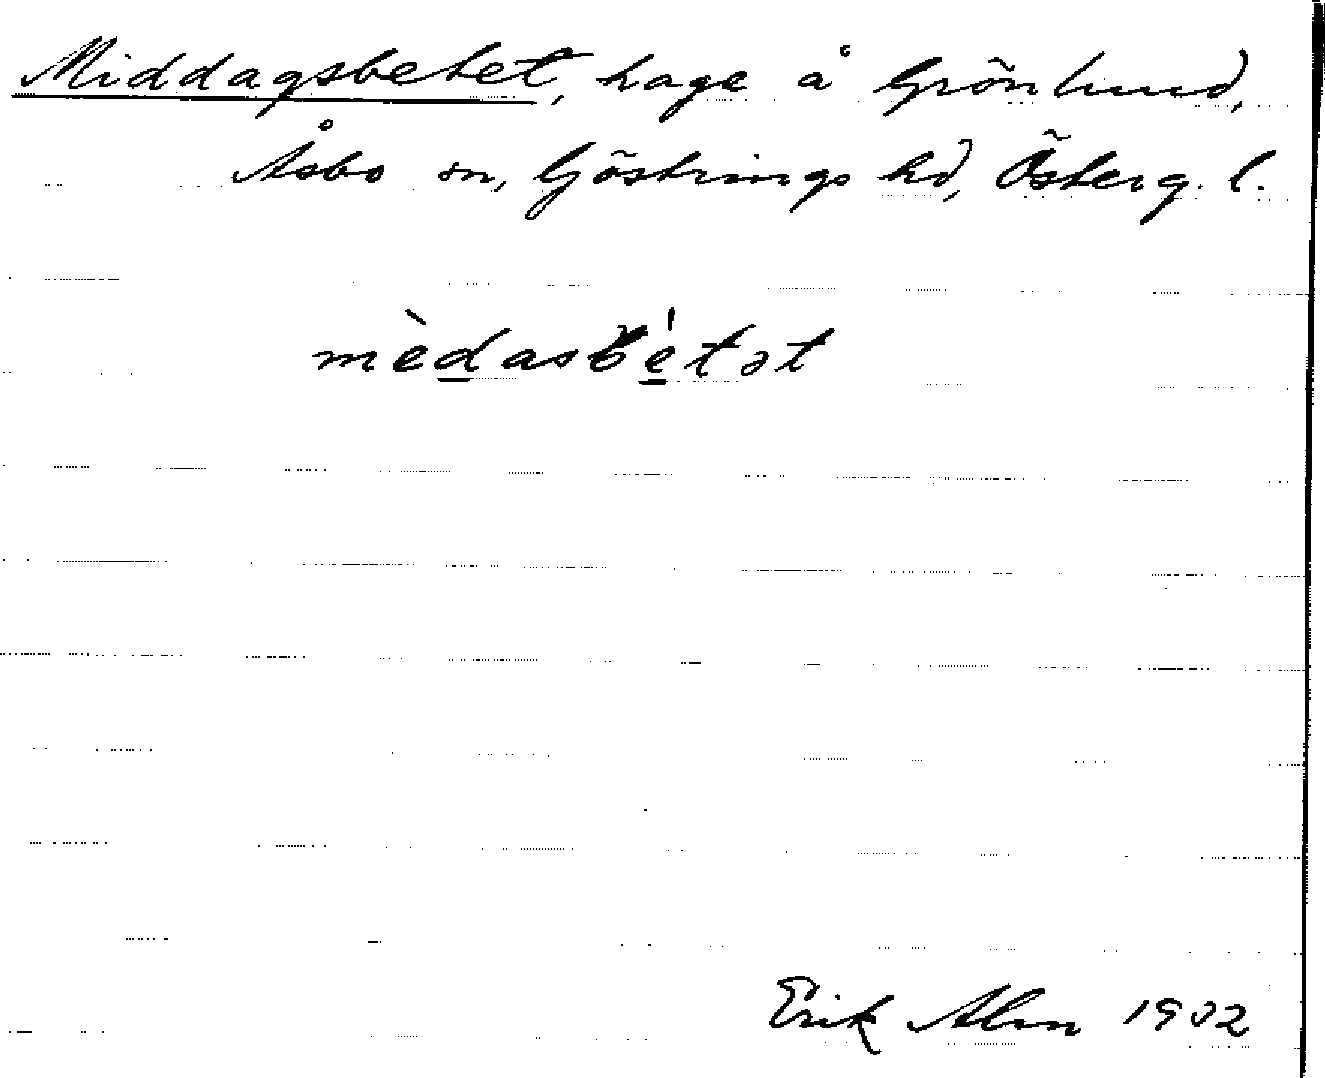 Middagsbetet, hage å Grönlund,
Åsbo sn, Göstrings hd, Österg. l.
mèdasbétət
Erik Alm 1932